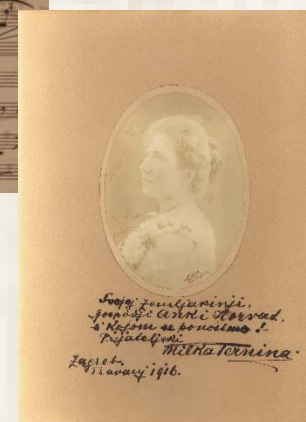 Svojoj zemljakinji,
gospodji Anki Horvat.
s kojom se ponosimo!-
Prijateljski
Milka Ternina.
Zagreb
1916.